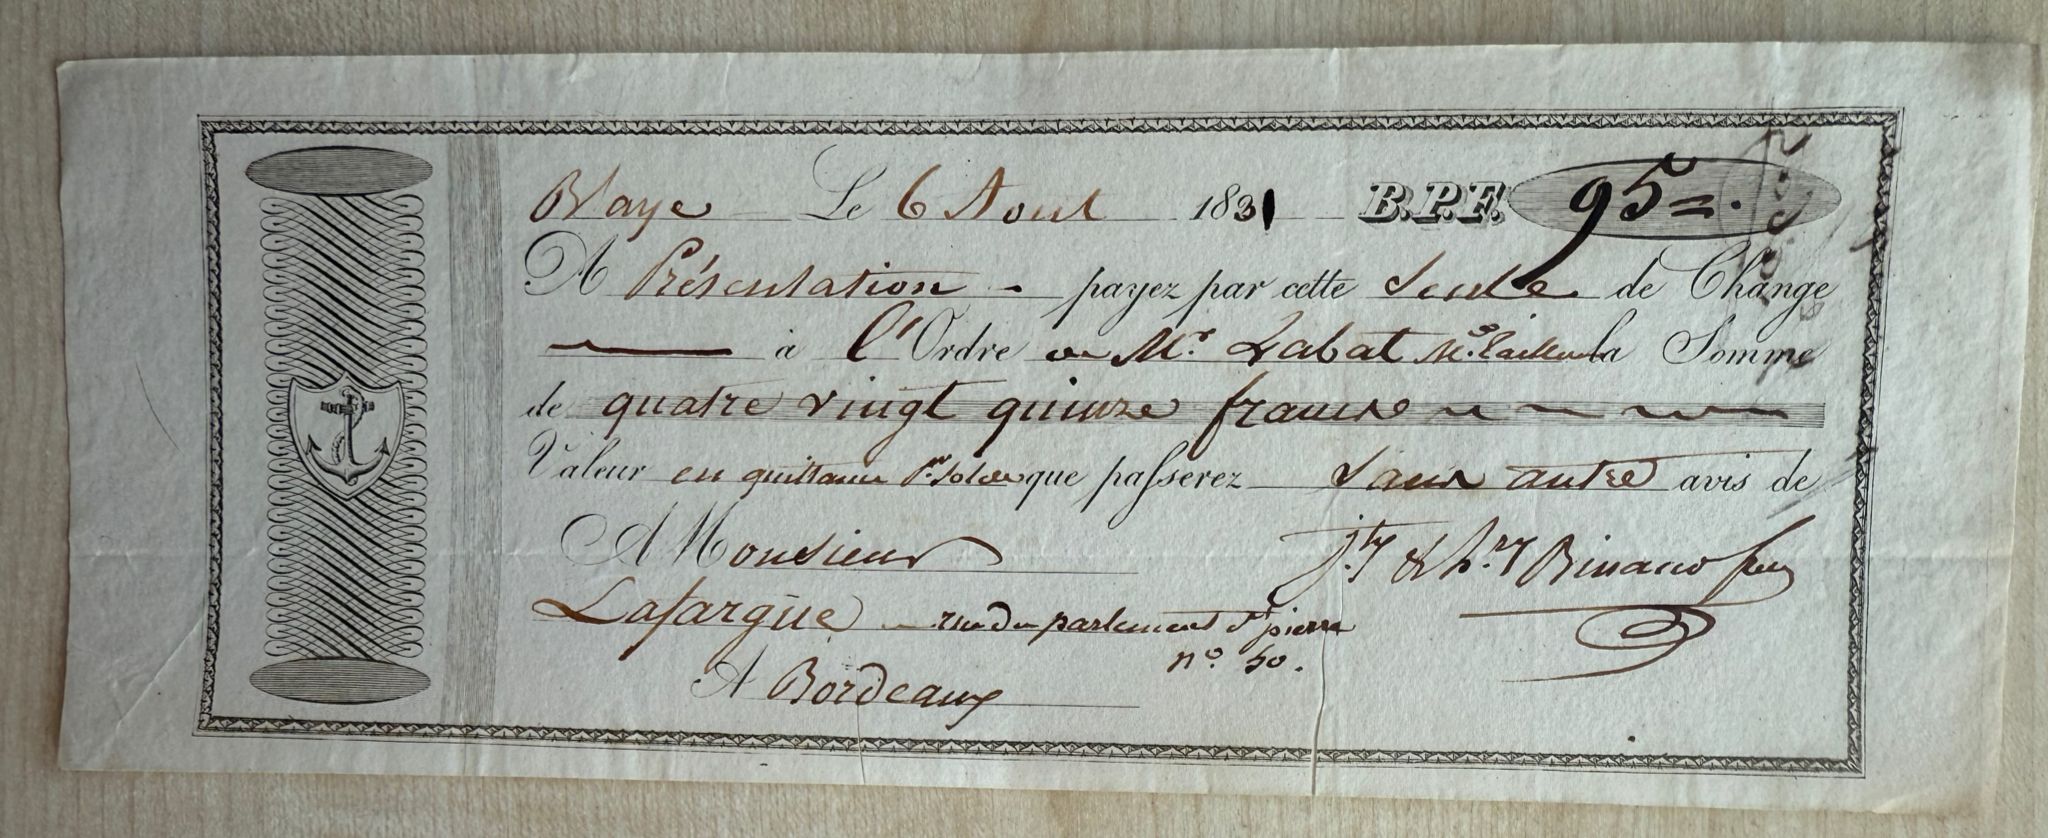 Blaye Le 6 Aout 1831 B.P.F. 95=.
A Présentation payez par cette Seule de Change
à l'Ordre de Mr. Labat la Somme
de quatre vingt quinze francs
Valeur en quittance pr. solde que passerez Sans autre avis de
A Monsieur
Lafargüe rue du parlement St pierre
no. 50.
A Bordeaux